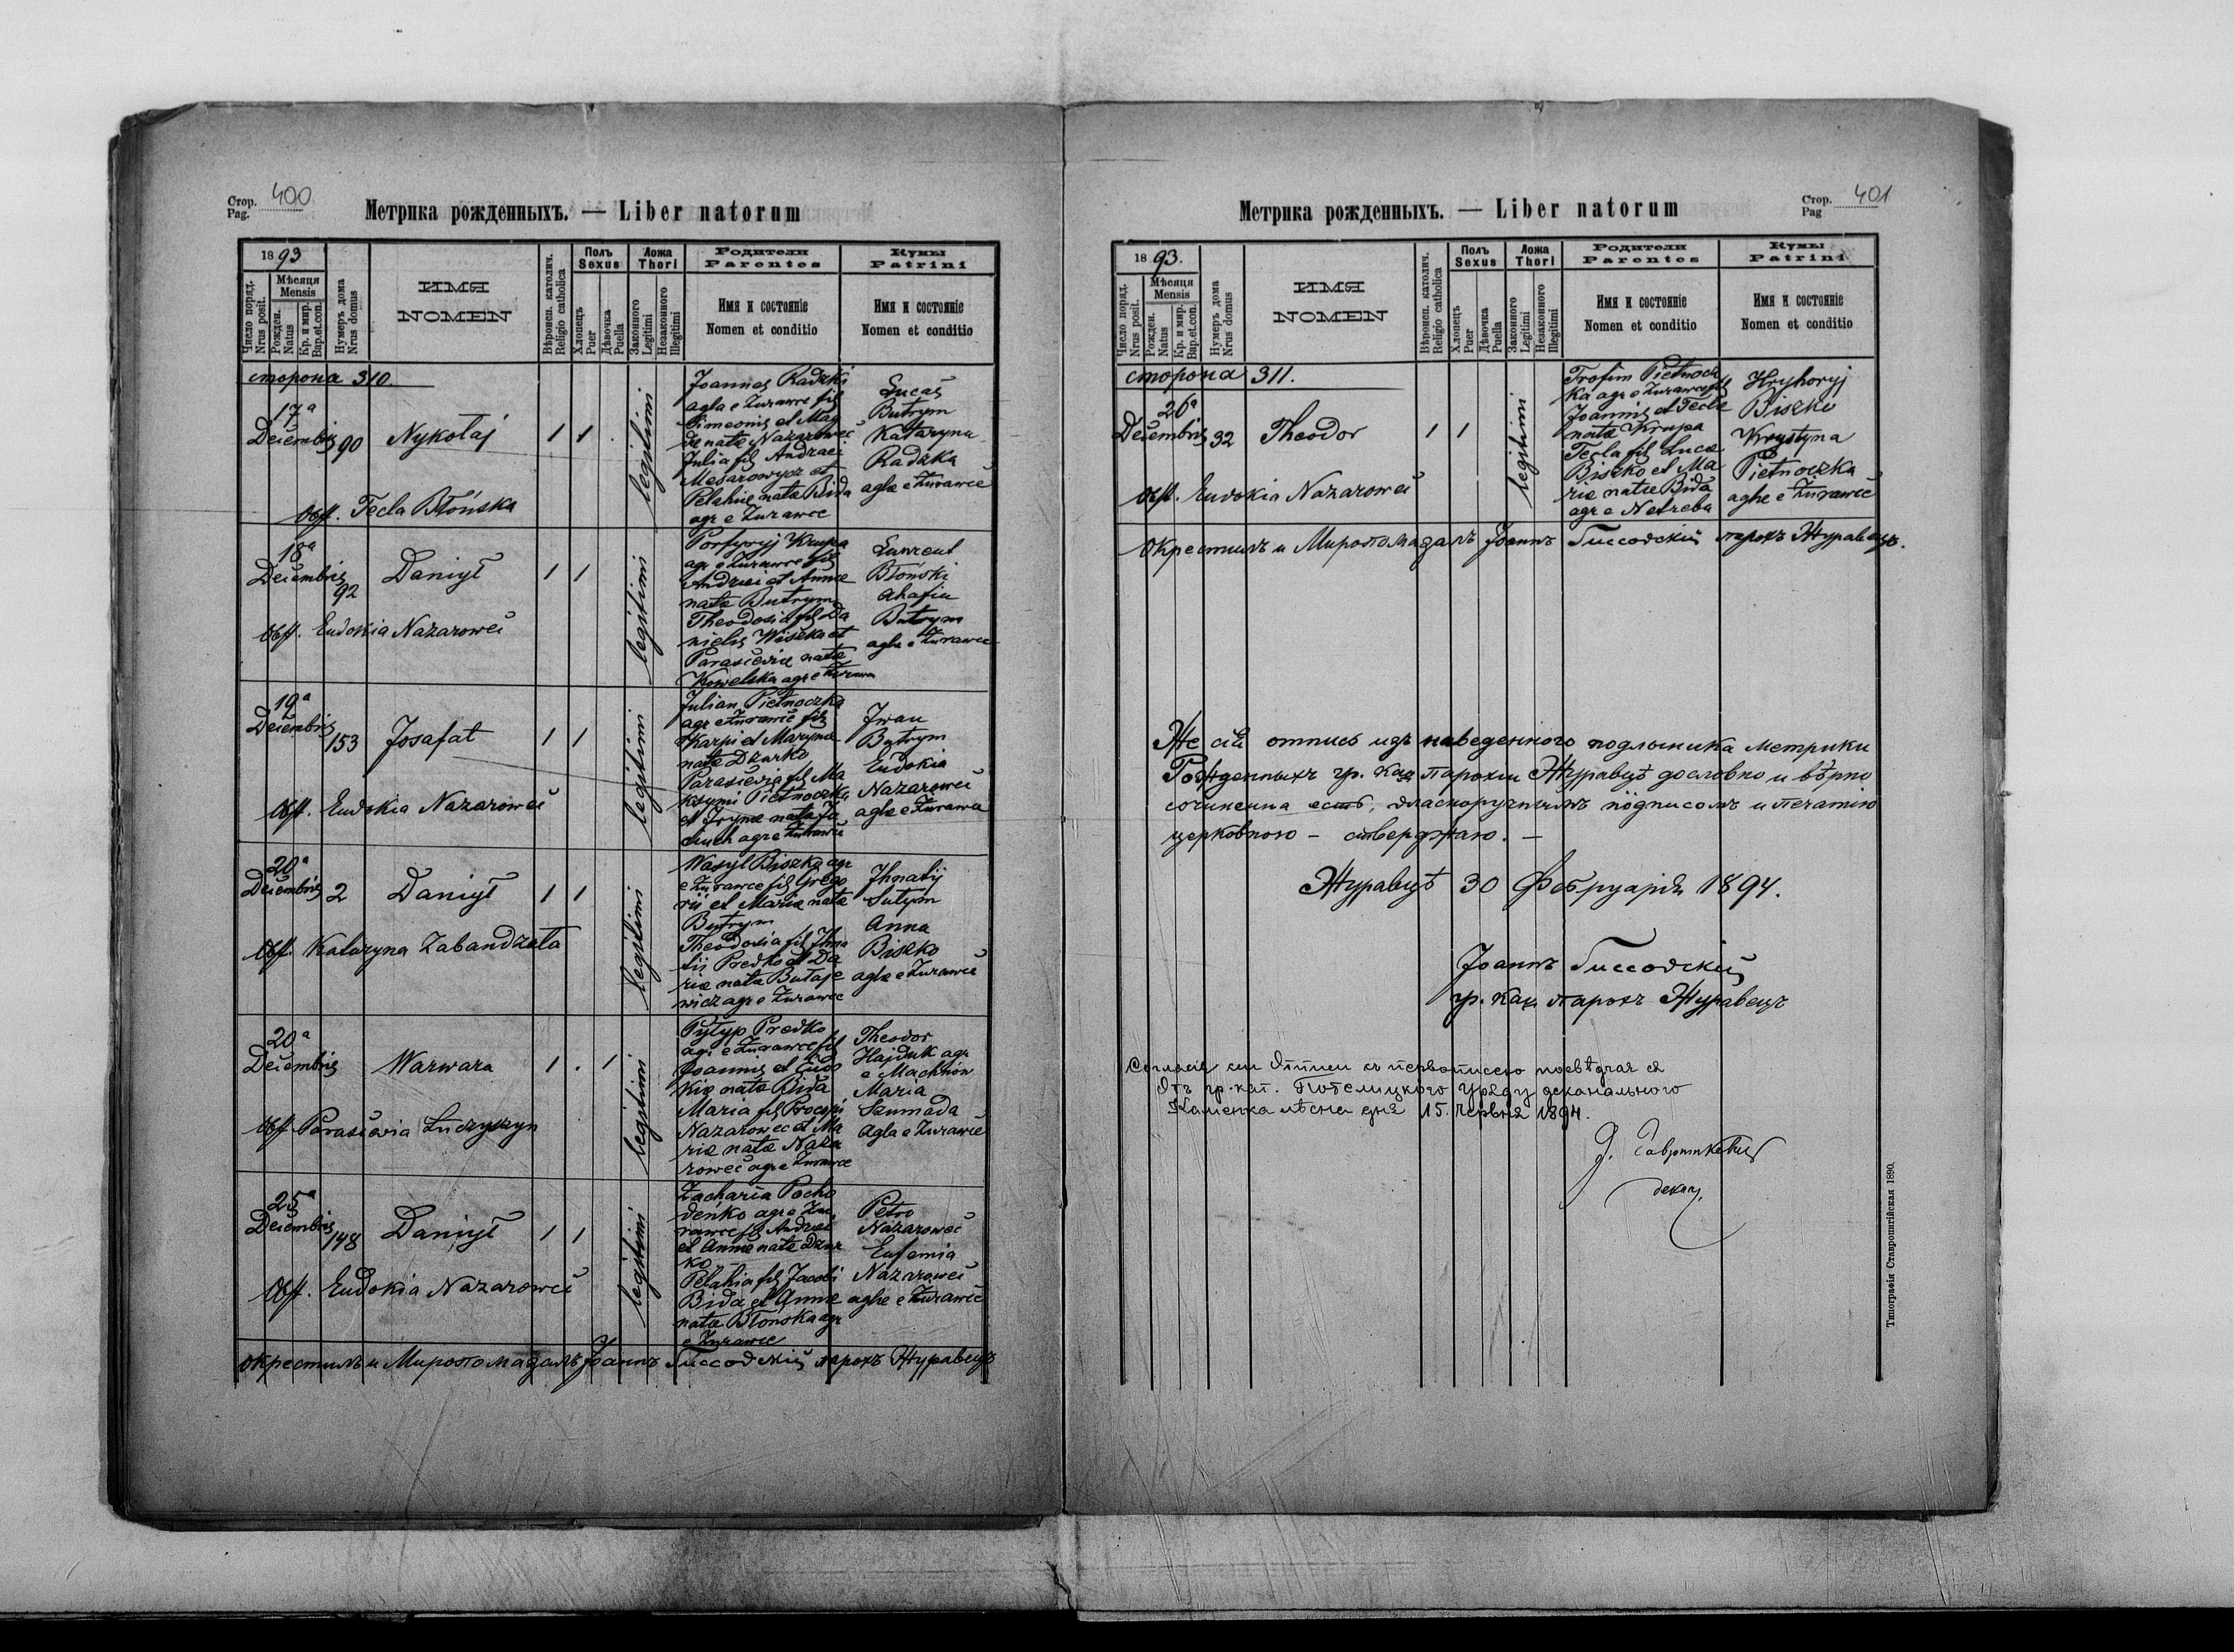 Стор.
Pag. 400
Метрика рожденныхъ. — Liber natorum
1893
Число поряд.
Nrus posit.
Мѣсяця
Mensis
Рожден.
Natus
Кр. и мир.
Bap.et.con.
Нумеръ дома
Nrus domus
ИМЯ
NOMEN
Вѣроисп. католич.
Religio catholica
Полъ
Sexus
Хлопецъ
Puer
Дѣвочка
Puella
Ложа
Thori
Законного
Legitimi
Незаконного
Illegitimi
Родители
Parentes
Имя и состояніе
Nomen et conditio
Кумы
Patrini
Имя и состояніе
Nomen et conditio
сторона 310.
17ª
Decembris 90 Nykołaj 1 1 legitimi
Obst. Tecla Błońska
Joannes Radzki
agla e Żurawce fil
Simeonis et Mag
dę natæ Nazarowec
Julia fil Andraei
et
Pelahiæ natæ Bida
agr e Żurawce
Lucas
Butrym
Kataryna
Radzka
aglæ e Żurawce
18ª
Decembris
92 Daniył 1 1 legitimi
Obst. Eudokia Nazarowec
Porfyryj Krupa
agr e Żurawce fil
Andraei et Annæ
natæ Butrym
Theodosia fil Da
nielis Wiszka et
Parasceviæ natæ
Kowelska agr e Żurawce
Laurent
Błoński
Ahafia
Butrym
aglæ e Żurawce
19ª
Decembris
153 Josafat 1 1 legitimi
Obst. Eudokia Nazarowec
Julian Pietnoczka
agr e Żurawce fil
Karpi et Marynæ
natæ Dzurko
Parascevia fil Ma
ksymi Pietnoczka
et Irynæ natæ
agr e Żurawce
Iwan
Butrym
Eudokia
Nazarowec
aglæ e Żurawce
20ª
Decembris 2 Daniył 1 1 legitimi
Obst. Kataryna Zabandzała
Wasyl Biszko agr
e Żurawce fil Grego
rii et Mariæ natæ
Butrym
Theodosia fil Ihna
tii Predko et Da
riæ natæ Butaje
wicz agr e Żurawce
Ihnatij
Sutym
Anna
Biszko
aglæ e Żurawce
20ª
Decembris Warwara 1 . 1 legitimi
Obst Parascevia Łuczyszyn
Pyłyp Predko
agr e Żurawce fil
Joannis et Eudo
kiæ natæ Bida
Maria fil Procopi
Nazarowec et Ma
riæ natæ Naza
rowec agr e Żurawce
Theodor
Hajduk agr
e Machnów
Maria
Szumada
agla e Żurawce
25ª
Decembris
148 Daniył 1 1 legitimi
Obst. Eudokia Nazarowec
Zacharia Pocho
denko agr e Żu
rawce fil Andraei
et Annæ natæ Dzur
ko
Pelahia fil Jacobi
Bida et Annæ
natæ Błońska agr
e Żurawce
Petro
Nazarowec
Eufemia
Nazarowec
aglæ e Żurawce
окрестилъ и Миропомазалъ Іоаннъ Гиссовскій парохъ Журавецъ
Метрика рожденныхъ. — Liber natorum
Стор.
Pag 401
1893.
Число поряд.
Nrus posit.
Мѣсяця
Mensis
Рожден.
Natus
Кр. и мир.
Bap.et.con.
Нумеръ дома
Nrus domus
ИМЯ
NOMEN
Вѣроисп. католич.
Religio catholica
Полъ
Sexus
Хлопецъ
Puer
Дѣвочка
Puella
Ложа
Thori
Законного
Legitimi
Незаконного
Illegitimi
Родители
Parentes
Имя и состояніе
Nomen et conditio
Кумы
Patrini
Имя и состояніе
Nomen et conditio
сторона 311.
26ª
Decembris 32 Theodor 1 1 legitimi
Obst. Eudokia Nazarowec
Trofim Pietnocz
ka agr e Żurawce fil
Joannis et Teclæ
natæ Krupa
Tecla fil Lucæ
Biszko et Ma
riæ natæ Bida
agr e Netreba
Hryhoryj
Biszko
Krystyna
Pietnoczka
aglæ e Żurawce
Окрестилъ и Миропомазалъ Іоаннъ Гиссовскій парохъ Журавецъ.
Же сей отпись изъ наведенного подлинника метрики
Рожденныхъ гр. кат парохіи Журавцѣ дословно и вѣрно
сочинена есть, власноручнымъ пôдписомъ и печатію
церковною – стверджаю. –
Журавцѣ 30 Фебруарія 1894.
Іоаннъ Гиссовскій
гр. кат. парохъ Журавецъ
Отъ гр. кат. Потелицкого Уряду деканального
Каменка лѣсна дня 15. червня 1894.
декан.
Типографія Ставропигійская 1890.